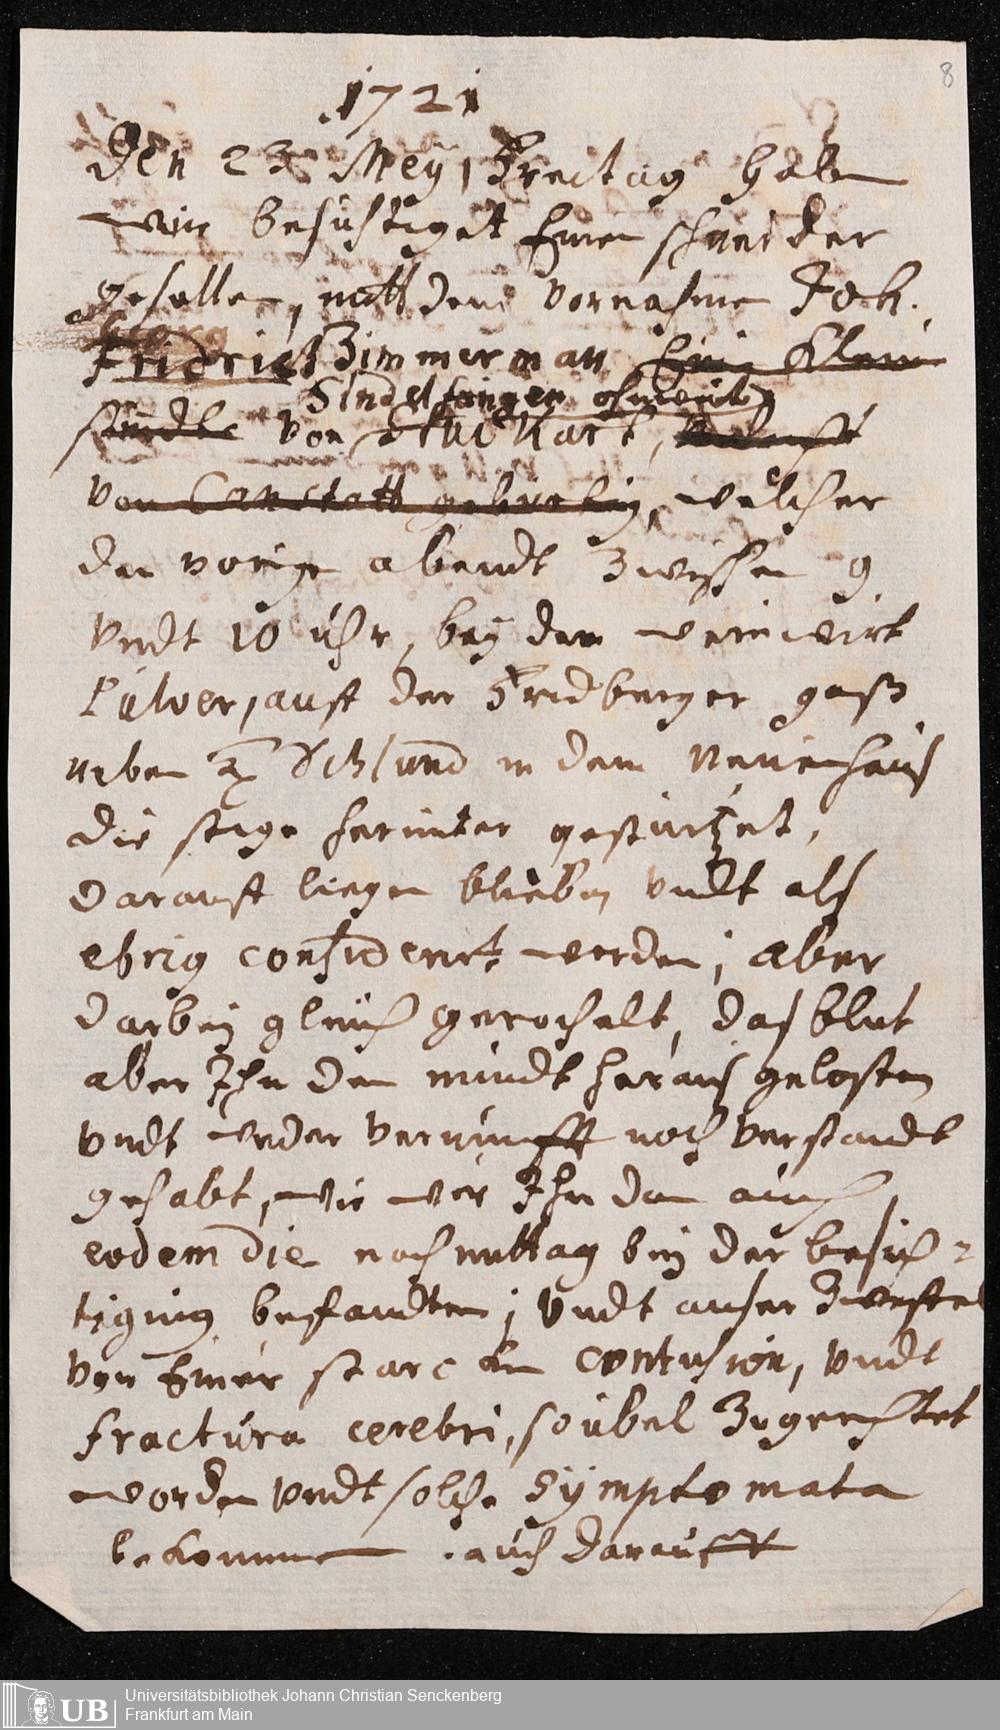 8
1721
Den 23 Meÿ, Freitag haben
wir besichtiget Einen schneider
gesellen, mitt dem vornahmen Joh.
Georg
Fridrich Zimmerman Ein klein
Sindelfingen ohnweit
städtle von Stutkart,
von Canstatt gebürtig, welcher
den vorigen abendt zwischen 9
vndt 10 uhr, beÿ dem weinwirt
Pulver, auff der Fridberger gaß
neben Schlund in dem neüen hauß
die stige herunter gestürtzet,
darauff liegen blieben vndt alß
ebrig considerirt worden; aber
darbeÿ gleich gerochelt, daß blut
aber Ihn den mundt herauß geloffen
vndt weder vernunfft noch verstandt
gehabt, wie wir Ihn dan auch
eodem die nachmittag beÿ der besich-
tigung befandten; vndt auser Zweifel
von Einer starcken contusion, vndt
fractura cerebri, so übel zugerichtet
worden vndt solche Symptomata
bekommen auch darauff
UB
Universitätsbibliothek Johann Christian Senckenberg
Frankfurt am Main